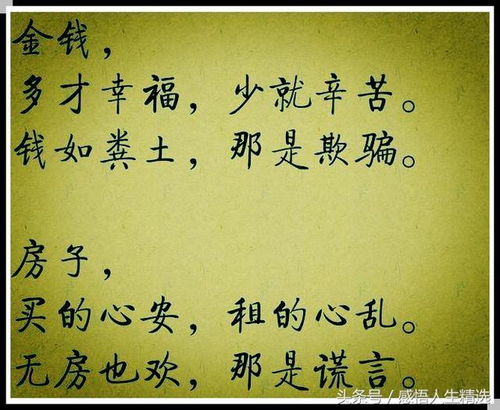 金钱，
多才幸福，少就辛苦。
钱如粪土，那是欺骗。
房子，
买的心安，租的心乱。
无房也欢，那是谎言。
头条号／感悟人生精选